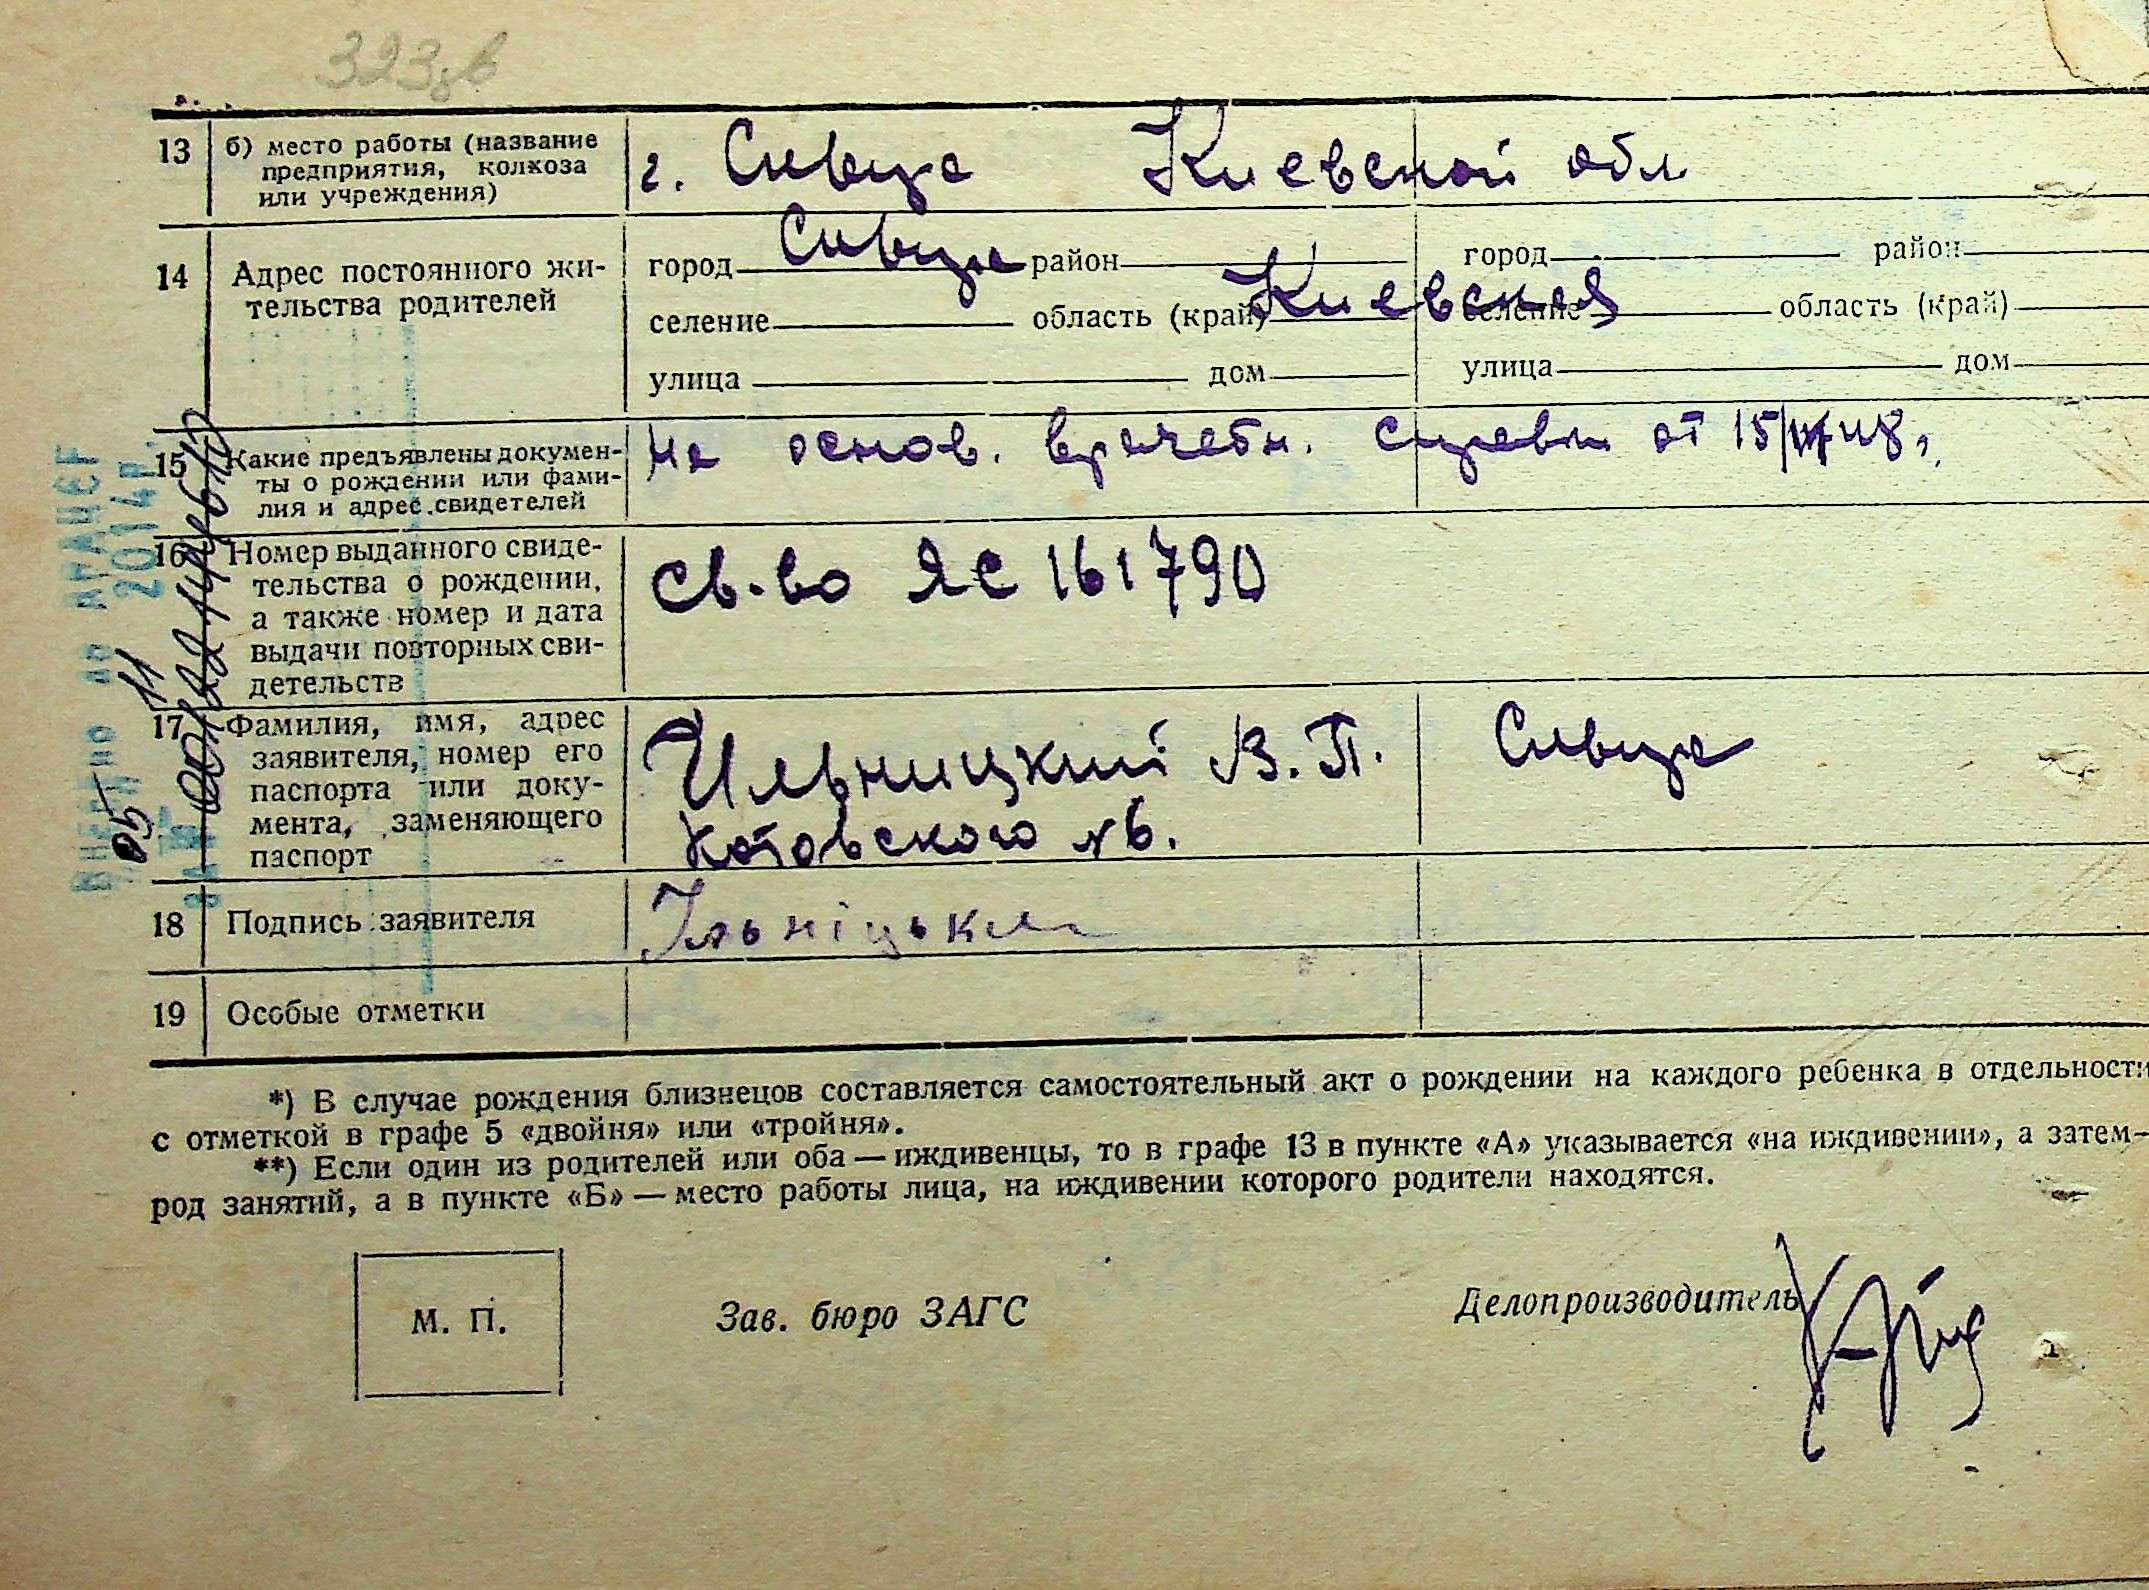 323зв
13 б) место работы (название
предприятия, колхоза
или учреждения)
г. Сквира Киевской обл
14 Адрес постоянного жи-
тельства родителей
город Сквира район
селение область (край) Киевская
улица дом
город район
селение область (край)
улица дом
15 Какие предъявлены докумен-
ты о рождении или фами-
лия и адрес свидетелей
на основ. врачебн. справки от 15/VII 48 г.
16 Номер выданного свиде-
тельства о рождении,
а также номер и дата
выдачи повторных сви-
детельств
Св-во ЯС 161790
17 Фамилия, имя, адрес
заявителя, номер его
паспорта или доку-
мента, заменяющего
паспорт
Ильницкий В. П. Сквира
Котовского №6.
18 Подпись заявителя
Ільніцька
19 Особые отметки
*) В случае рождения близнецов составляется самостоятельный акт о рождении на каждого ребенка в отдельности
с отметкой в графе 5 «двойня» или «тройня».
**) Если один из родителей или оба — иждивенцы, то в графе 13 в пункте «А» указывается «на иждивении», а затем—
род занятий, а в пункте «Б» — место работы лица, на иждивении которого родители находятся.
М. П.
Зав. бюро ЗАГС
Делопроизводитель
Внесено до ДРАЦСГ
05 11 2014 р.